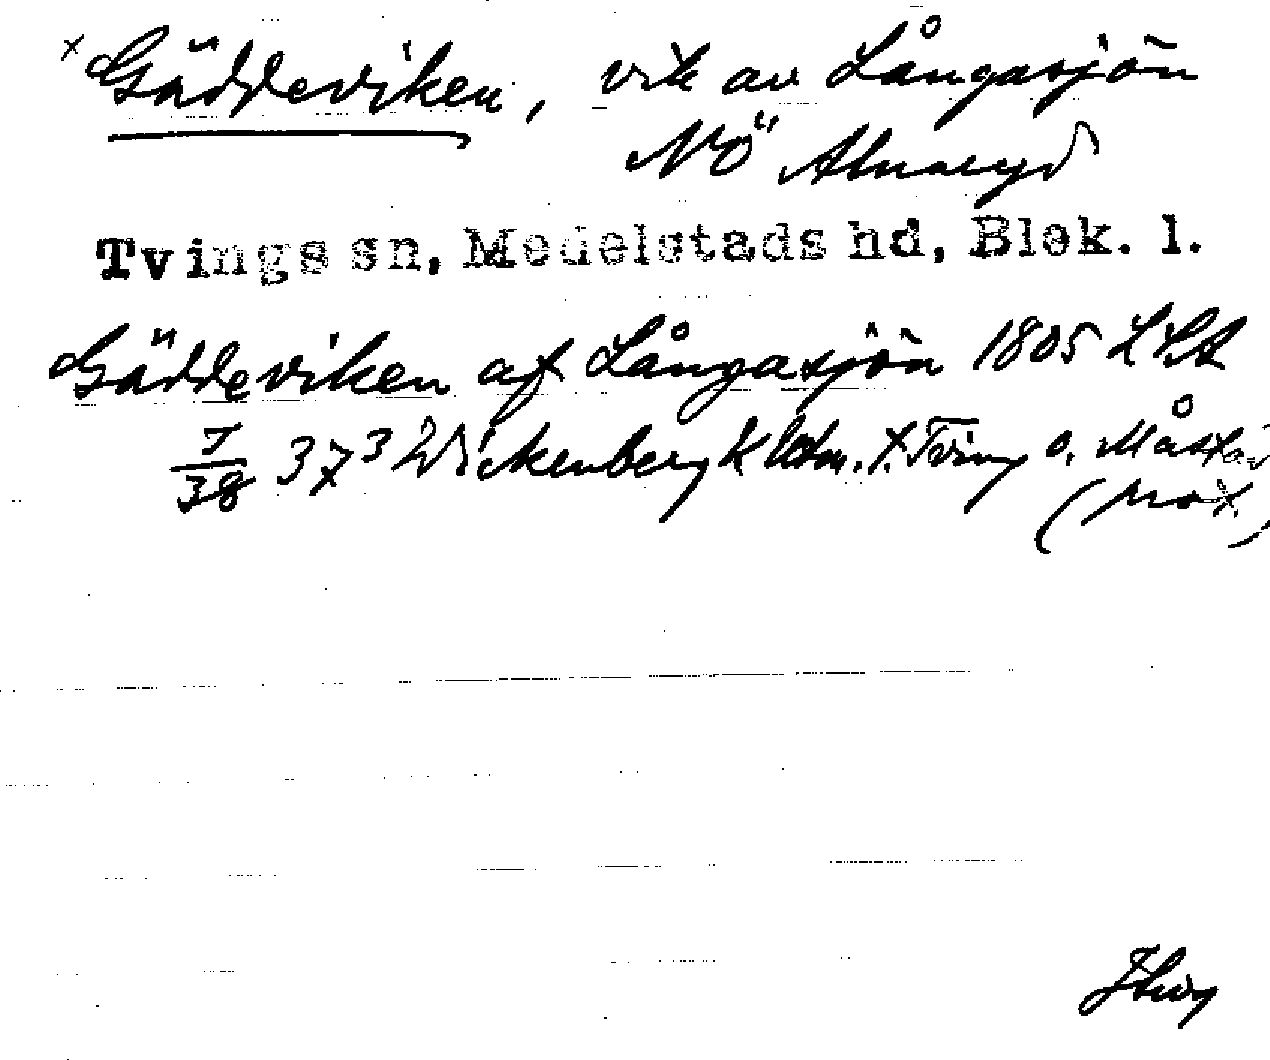 x Gäddeviken, vik av Långasjön
NÖ Alnaryd
Tvings sn, Medelstads hd, Blek. l.
Gäddeviken af Långasjön 1805 LSA
7/38 373 Wickenberg K t. Tving o.